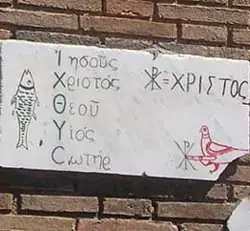 Ἰησοῦς
Χριστός
Θεοῦ
Υἱός
Cωτήρ
☧=ΧΡΙΣΤΟΣ
☧